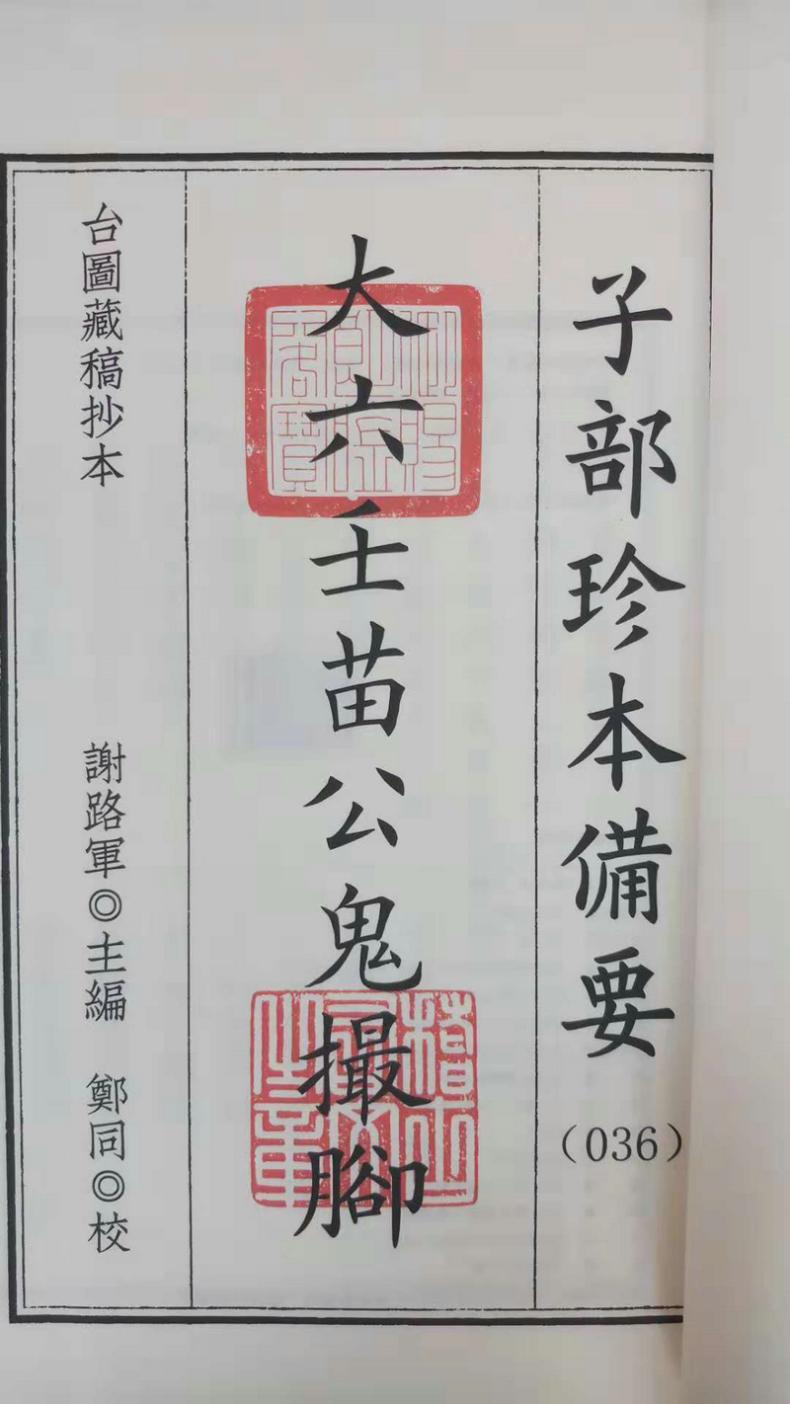 子部珍本備要（036）
大六壬苗公鬼撮腳
台圖藏稿抄本 謝路軍◎主編 鄭同◎校